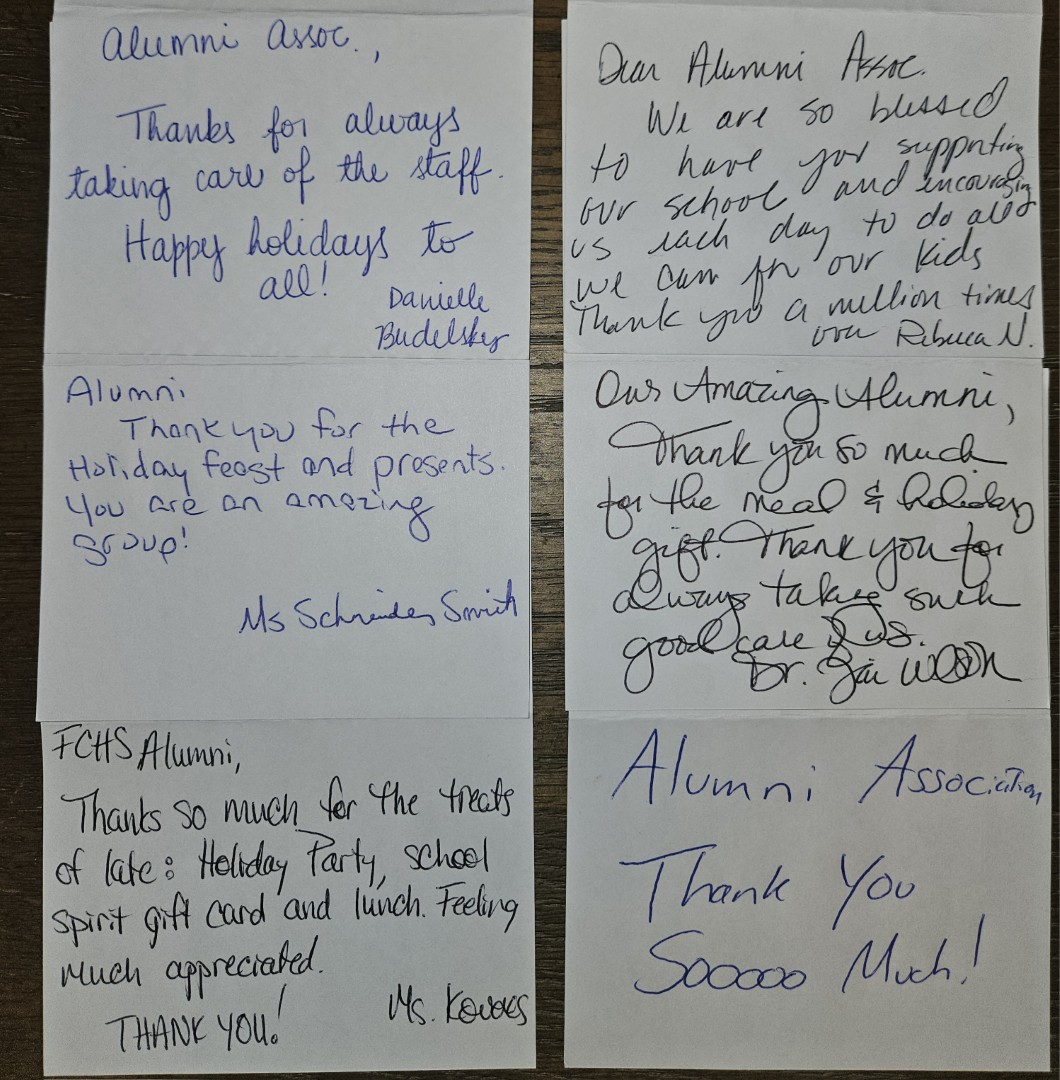 Alumni Assoc.,
Thanks for always
taking care of the staff.
Happy holidays to
all!
Danielle
Budelsky
Dear Alumni Assoc.
We are so blessed
to have you supporting
our school and encouraging
us each day to do all
we can for our kids
Thank you a million times
over Rebecca N.
Alumni
Thank you for the
Holiday feast and presents.
You are an amazing
group!
Ms Schneider Smith
Our Amazing Alumni,
Thank you so much
for the meal & holiday
gift. Thank you for
always taking such
good care of us.
Dr. Wilson
FCHS Alumni,
Thanks so much for the treats
of late: Holiday Party, school
spirit gift card and lunch. Feeling
much appreciated.
THANK YOU!
Ms. Kovacs
Alumni Association
Thank You
Sooooo Much!